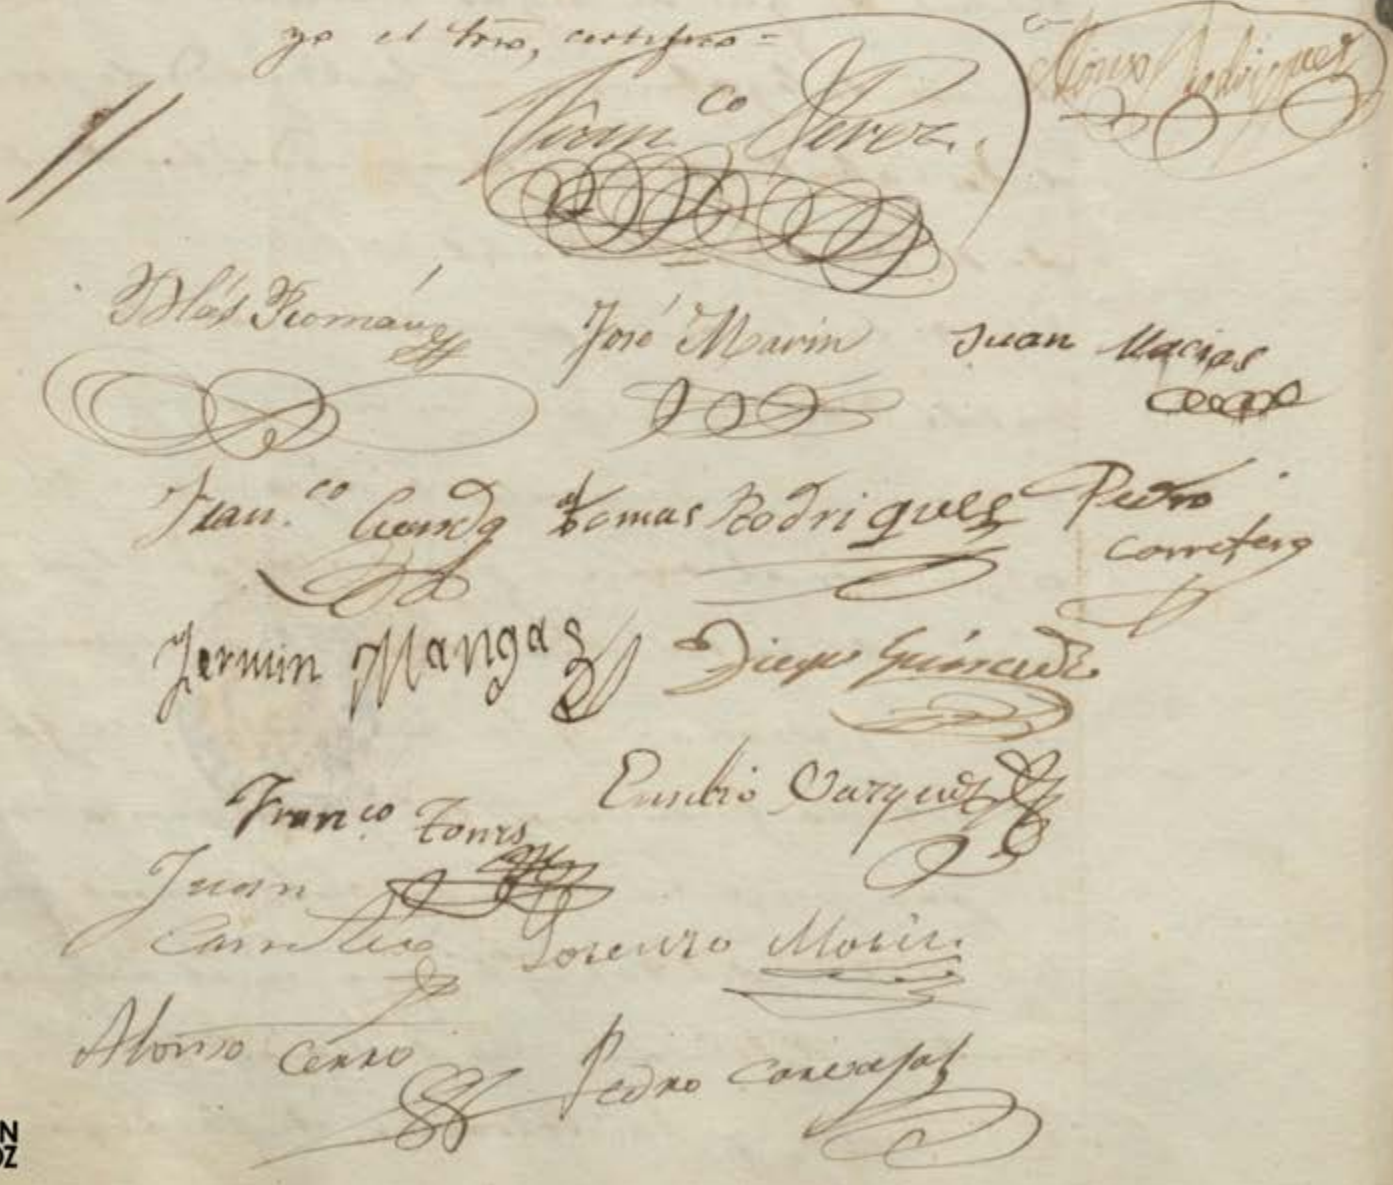 yo el Srio, certifico =
Alonso Rodriguez
Fran.co Perez.
Blás Román
José Marin
Juan Macias
Fran.co
Tomas Rodrigues
Pedro
Carretero
Fermin Mangas
Diego
Eusebio Vazquez
Fran.co Torres
Juan
Carretero
Lorenzo Marin.
Alonso Cerro
Pedro Carvajal
N
OZ